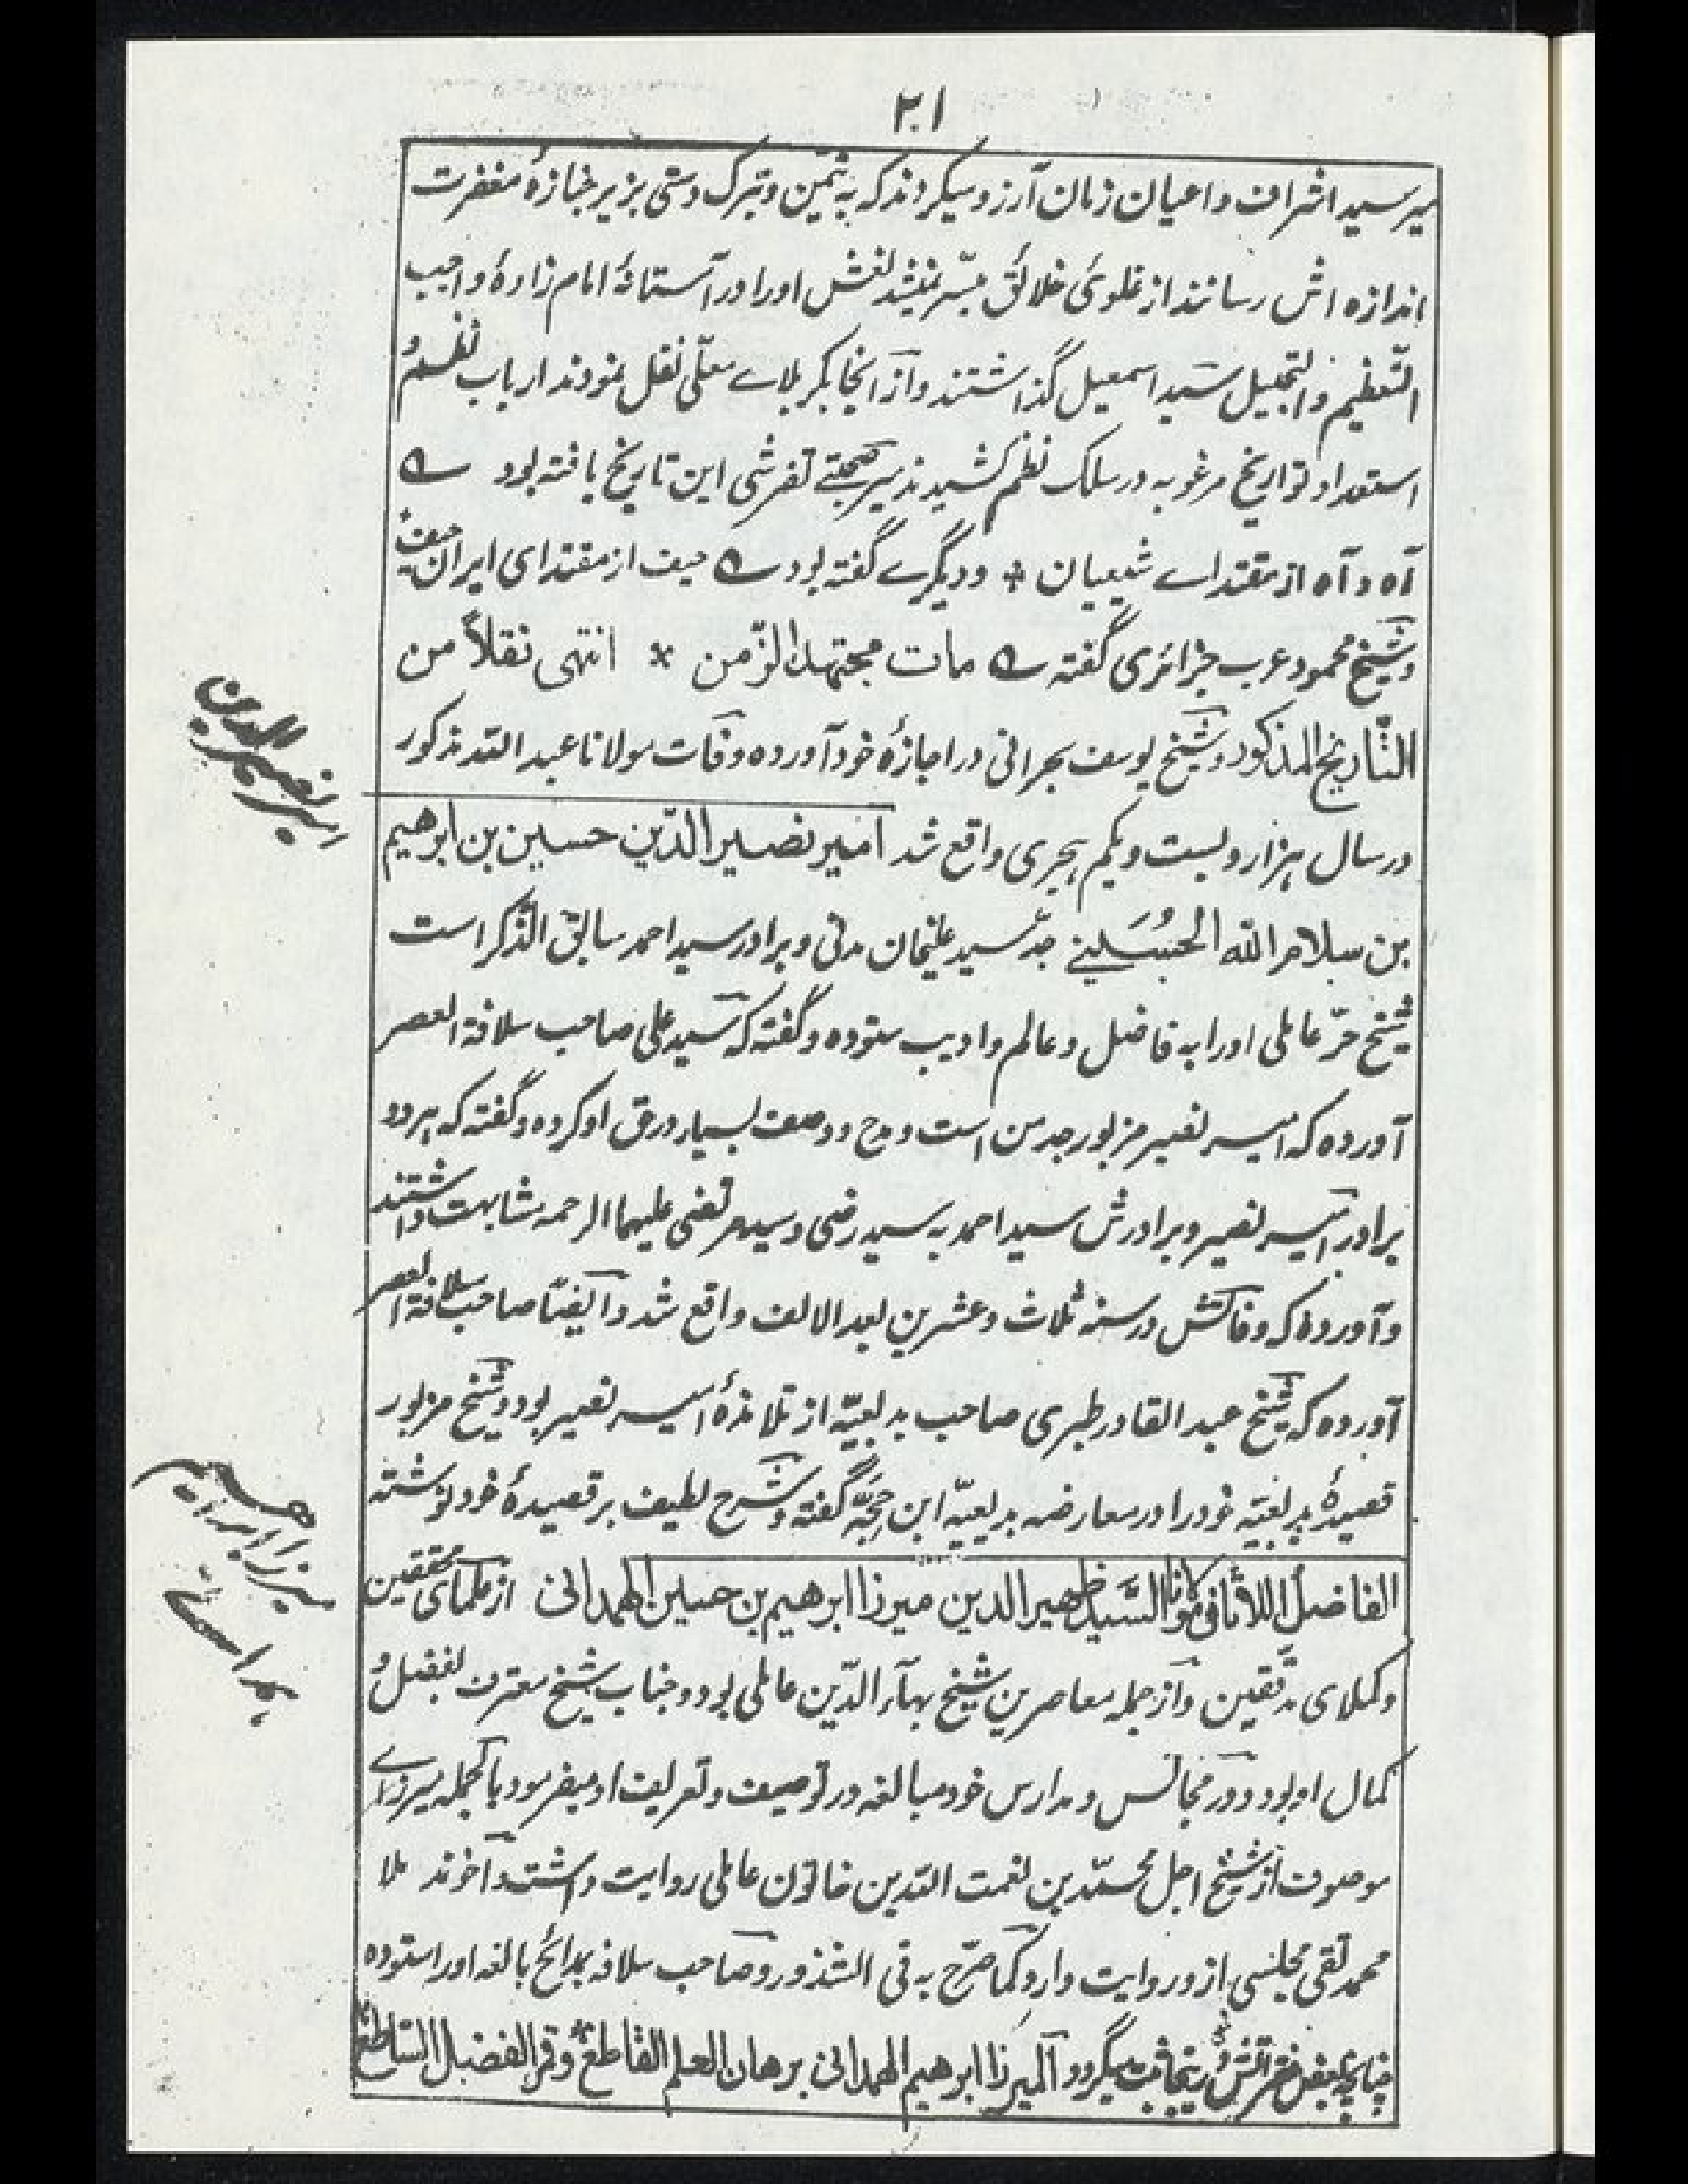 ٢٠١
میرسید اشراف و اعیان زمان آرزو میکردند که به تیمّن و تبرک دستی بزیر جنازهٔ مغفرت
اندازه اش رسانند از غلوی خلائق میسّر نمیشد نعش او را در آستانهٔ امام زادهٔ واجب
التّعظیم والتبجیل سید اسمعیل گذاشتند و از آنجا بکربلاے معلّی نقل نمودند ارباب نظم و
استعداد تواریخ مرغوبه در سلک نظم کشیدند میر صحبتے تفرشی این تاریخ یافته بود ؎
آه و آه از مقتداے شیعیان * و دیگرے گفته بود ؎ حیف از مقتدای ایران حیف
و شیخ محمود عرب جزائری گفته ؎ مات مجتهد الزّمن * انتهی نقلاً من
التّاریخ المذکور و شیخ یوسف بحرانی در اجازهٔ خود آورده وفات مولانا عبد الله مذکور
در سال هزار و بست و یکم هجری واقع شد امیر نصیر الدّین حسین بن ابرهیم
بن سلام الله الحُسَینے جدّ سید علیخان مدنی و برادر سید احمد سابق الذّکر است
شیخ حرّ عاملی او را به فاضل و عالم و ادیب ستوده و گفته که سید علی صاحب سلافة العصر
آورده که امیر نصیر مزبور جد من است و مدح و وصف بسیار در حق او کرده و گفته که هر دو
برادر امیر نصیر و برادرش سید احمد به سید رضی و سید مرتضی علیهما الرحمه مشابهت داشتند
و آورده که وفاتش در سنه ثلاث و عشرین بعد الالف واقع شد و ایضًا صاحب سلافة العصر
آورده که شیخ عبد القادر طبری صاحب بدیعیّه از تلامذهٔ امیر نصیر بود و شیخ مزبور
قصیدهٔ بدیعیّه خود را در معارضه بدیعیّه ابن حجّه گفته و شرح لطیف بر قصیدهٔ خود نوشته
الفاضل اللاثانی مولانا السّید ظهیر الدین میرزا ابرهیم بن حسین الهمدانی از علمای محققین
و کملای مدققین و از جمله معاصرین شیخ بهآء الدّین عاملی بود و جناب شیخ معترف بفضل و
کمال او بود و در مجالس و مدارس خود مبالغه در توصیف و تعریف او میفرمود بالجمله میرزاے
موصوف از شیخ اجل محمّد بن نعمت الله بن خاتون عاملی روایت داشت و آخوند ملا
محمد تقی مجلسی از و روایت دارد کما صرّح به فی الشذور و صاحب سلافه بمدائح بالغه او را ستوده
چنانچه بعض میگردد المیرزا ابرهیم الهمدانی برهان العلم القاطع و قمر الفضل السّاطع
میر نصیر الدین
میرزا ابراهیم
همدانی